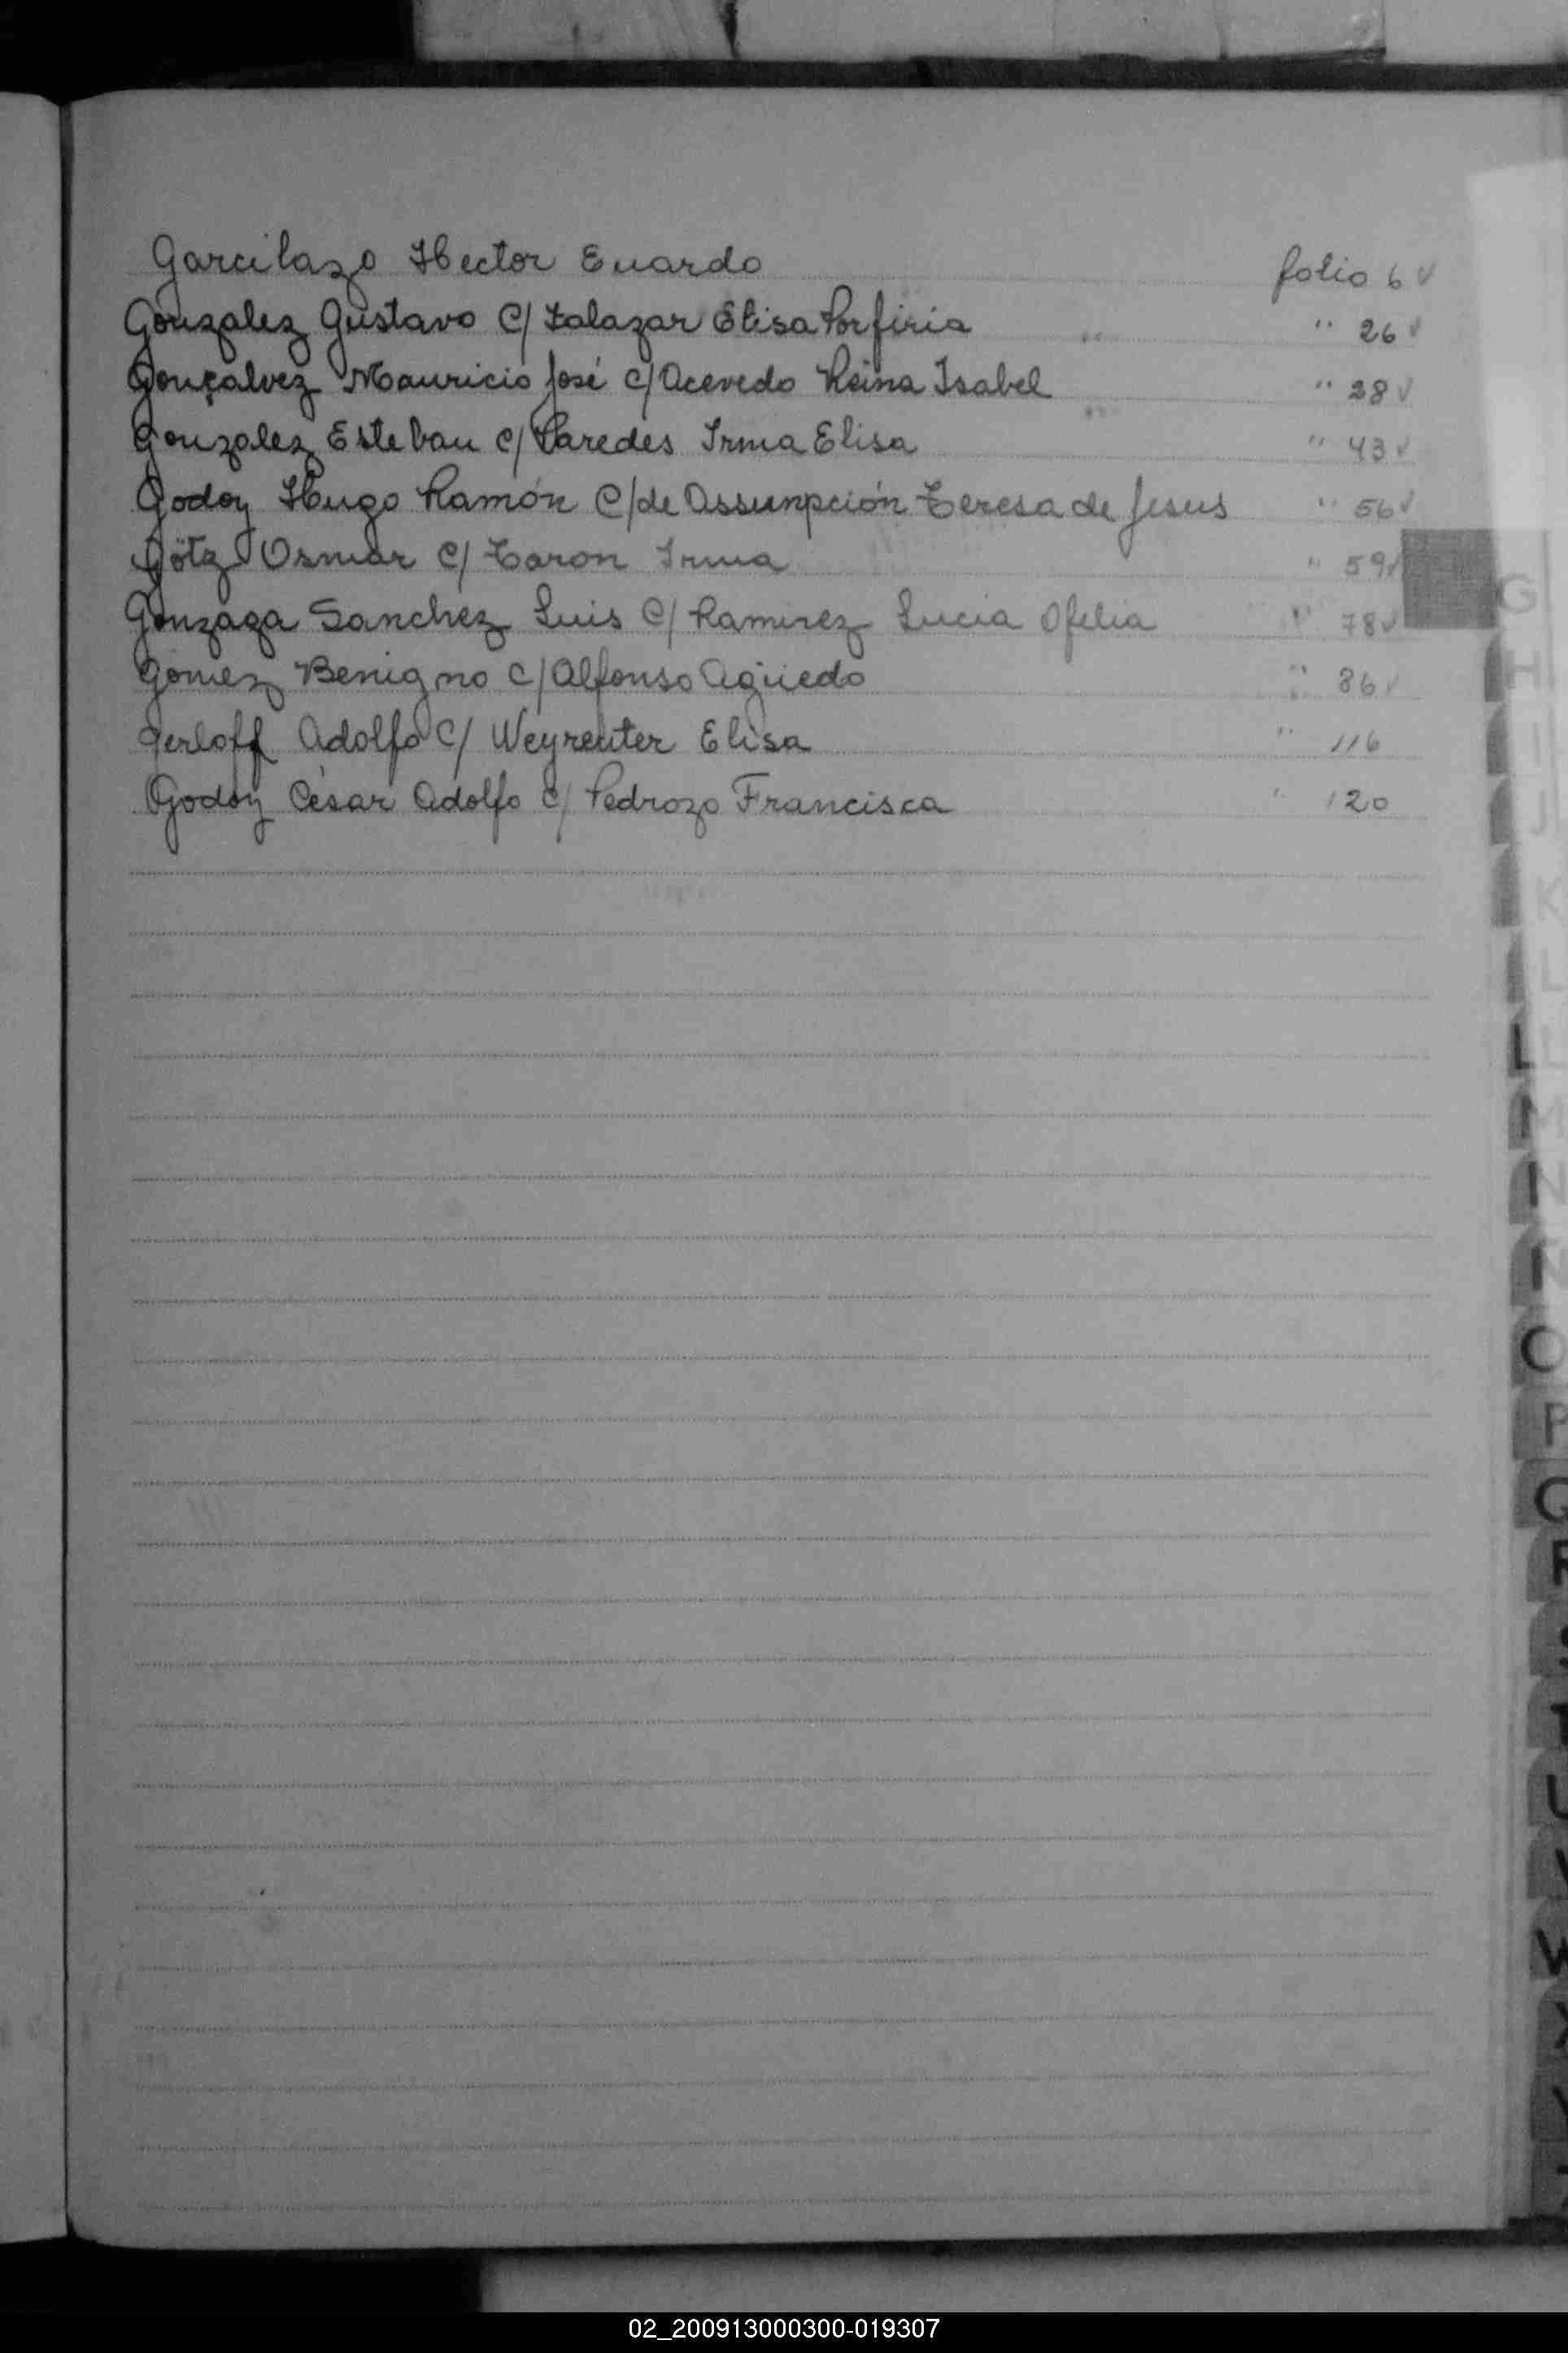 Garcilazo Hector Enardo folio 6 ✓
Gonzalez Gustavo C/ Zalazar Elisa Porfiria " 26 ✓
Gonçalvez Mauricio José c/ Acevedo Reina Isabel " 28 ✓
Gonzalez Esteban c/ Paredes Irma Elisa " 43 ✓
Godoy Hugo Ramón C/ de Assumpción Teresa de Jesus " 56 ✓
Götz Osmar C/ Taron Irma " 59 ✓
Gonzaga Sanchez Luis C/ Ramirez Lucia Ofelia " 78 ✓
Gómez Benigno C/ Alfonso Agüedo " 86 ✓
Gerloff Adolfo C/ Weyreuter Elisa " 116
Godoy César Adolfo c/ Pedrozo Francisca " 120
G
H
I
J
K
L
L
M
N
N
O
P
Q
R
S
T
U
V
W
X
Y
Z
02_200913000300-019307